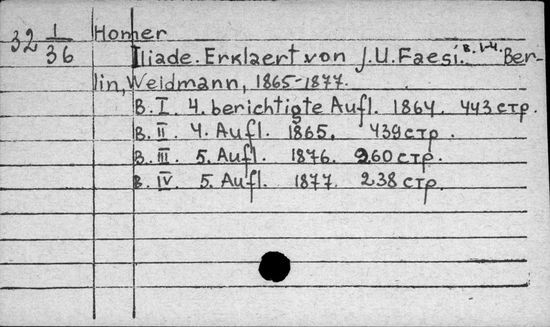 32 1/36 Homer
Iliade. Erklaert von J.U.Faesi. B. 1-4. Ber-
lin, Weidmann, 1865-1877.
B. I. 4. berichtigte Aufl. 1864. 443 стр.
B. II. 4. Aufl. 1865. 439 стр.
B. III. 5. Aufl. 1876. 260 стр.
B. IV. 5. Aufl. 1877. 238 стр.